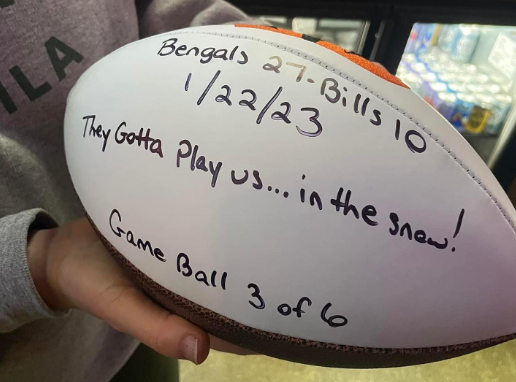 Bengals 27-Bills 10
1/22/23
They Gotta Play us... in the snow!
Game Ball 3 of 6
ILA